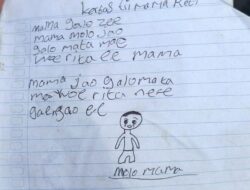 kertas tii mama reti
mama galo zee
mama molo Jao
galo mata mae
woe rita ee mama
mama Jao galo mata
mae woe rita nese
gae ngao ee
molo mama